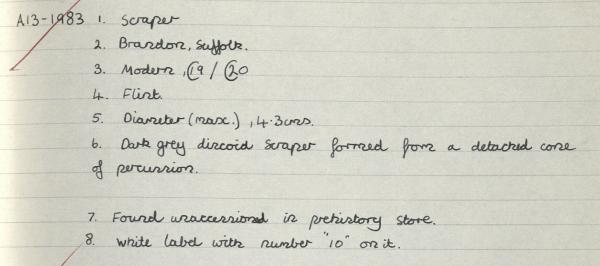 A13-1983 1. Scraper
2. Brandon, Suffolk.
3. Modern, C19 / C20
4. Flint.
5. Diameter (max.), 4.3cms.
6. Dark grey discoid scraper formed from a detached cone
of percussion.
7. Found unaccessioned in prehistory store.
8. White label with number "10" on it.